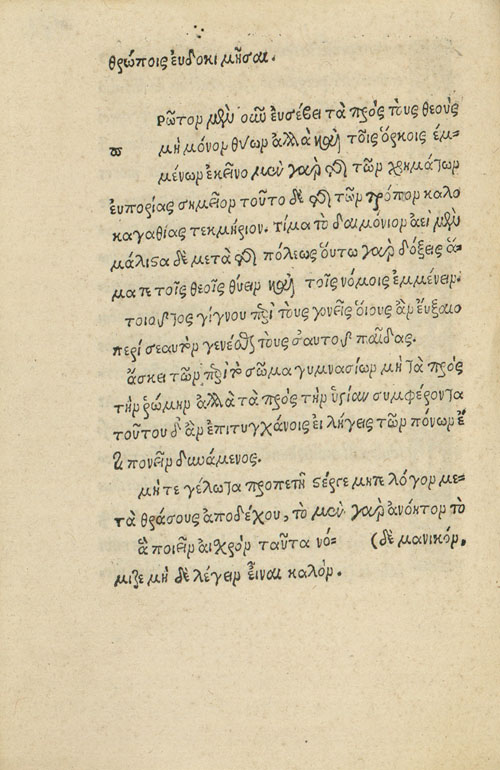 θρώποις ἐυδοκιμῆσαι.
Ρῶτον μὲν οὖν ἐυσέβει τὰ πρὸς τοὺς θεοὺς
μὴ μόνον θύων ἀλλὰ καὶ τοῖς ὅρκοις ἐμ-
μένων ἐκεῖνο μὲν γὰρ τῶν χρημάτων
ἐυπορίας σημεῖον τοῦτο δὲ τῶν τρόπον καλο
καγαθίας τεκμήριον. τίμα τὸ δαιμόνιον ἀεὶ μὲν
μάλιςα δὲ μετὰ πόλεως οὕτω γὰρ δόξεις ἅ-
μα τε τοῖς θεοῖς θύειν καὶ τοῖς νόμοις ἐμμένειν.
τοιοῦτος γίγνου περὶ τοὺς γονεῖς ὅιους ἂν ἐύξαιο
περὶ σεαυτὸν γενέσθαι τοὺς σαυτοῦ παῖδας.
ἄσκει τῶν περὶ τὸ σῶμα γυμνασίων μὴ τὰ πρὸς
τὴν ῥώμην ἀλλὰ τὰ πρὸς τὴν ὑγίαν συμφέροντα
τοῦτου δ' ἂν ἐπιτυγχάνοις ἐι λήγεις τῶν πόνων ἔ
τι πονεῖν δυνάμενος.
μήτε γέλωτα προπετῆ ςέργε μήτε λόγον με-
τὰ θράσους ἀποδέχου, τὸ μὲν γὰρ ἀνόητον τὸ
ἃ ποιεῖν αἰχρὸν ταῦτα νό- (δὲ μανικόν,
μιζε μὴ δὲ λέγειν εἶναι καλόν.